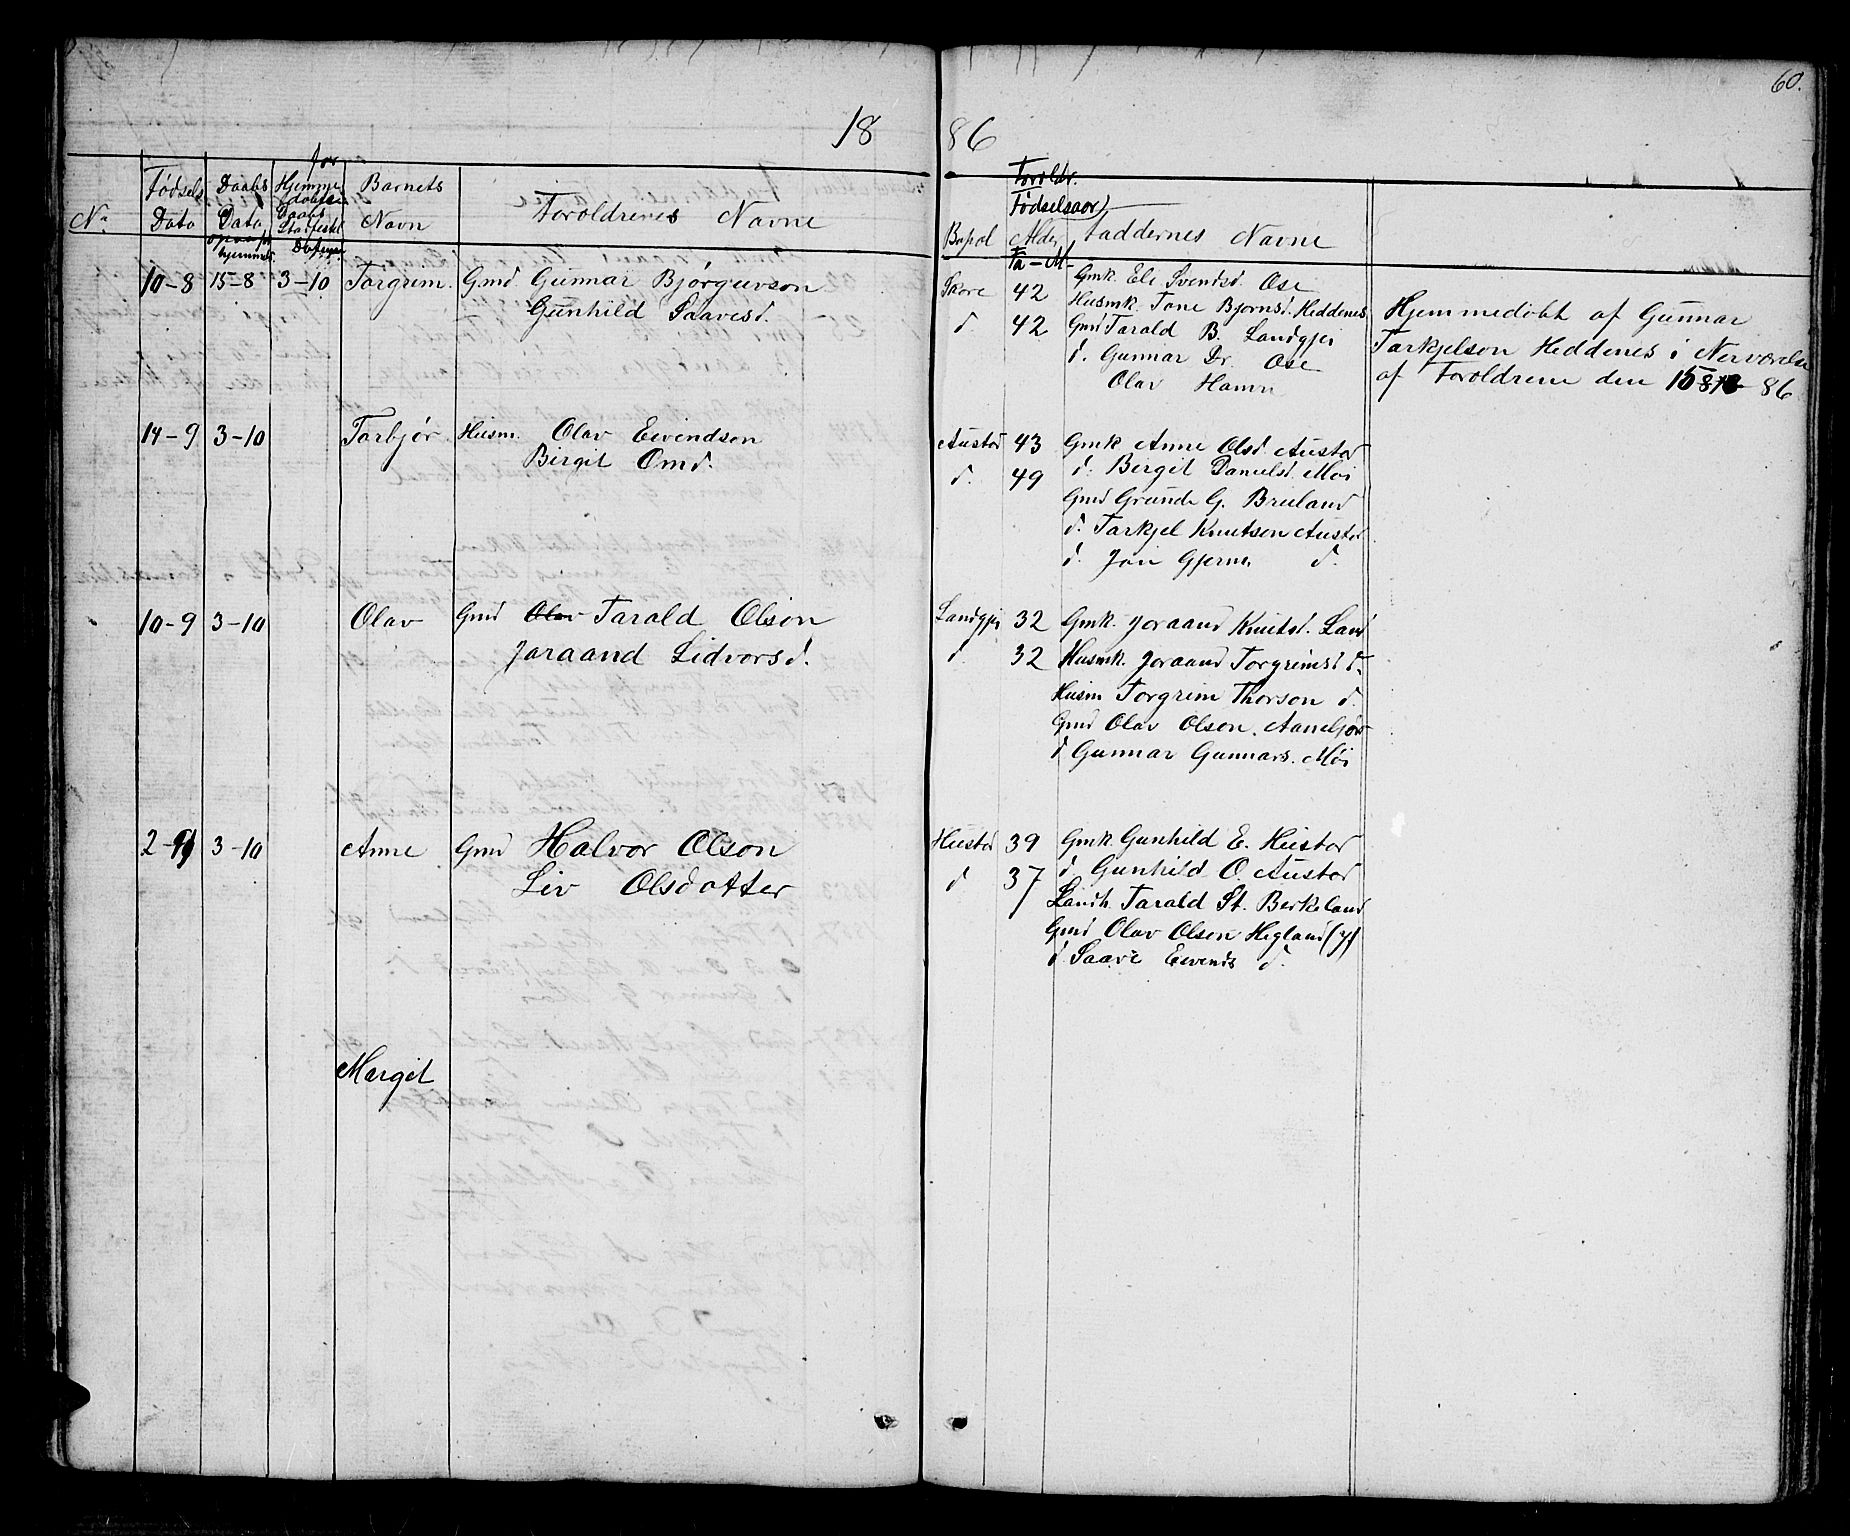 60.
18 86
No Fødsels Dato Daabs Dato Hjemme daabens Barnets Navn Forældrenes Navne Bopæl Forældr. Fødselsaar Alder Fa - M- Faddernes Navne
10-8 15-8 3-10 Torgrim Gmd Gunnar Bjørguvson Skore 42 Gmk. Eli Svendsd. Ose
Gunhild Saavesd. d 42 Husmk. Tone Bjørnsd. Heddenes
Gmd Tarald B. Landgjei
d. Gunnar Dr. Ose
Olav Hamn
Hjemmedøbt af Gunnar
Tarkjelson Heddenes i Nærværelse
af Forældrene den 15 86
14-9 3-10 Torbjør Husm. Olav Eivendson Austad 43 Gmk Anne Olsd. Austad
Birgit Omd. d. 49 d. Birgit Danielsd. Moi
Gmd Grunde G. Bruland
d. Tarkjel Knutson Austad
d. Jon Gjerne d.
10-9 3-10 Olav Gmd Olav Tarald Olson Landgjei 32 Gmk. Joraand Knutsd. Land
Joraand Lidvorsd. d. 32 Husmk. Joraand Torgrimsd d-
Husm Torgrim Thorson d.
Gmd Olav Olson Aameljør
d Gunnar Gunnars. Moi
2-9 3-10 Anne Gmd Halvor Olson Hustad 39 Gmk. Gunhild E. Hustad
Liv Olsdatter d 37 d. Gunhild O. Austad
Landh. Tarald St. Berkeland
Gmd Olav Olson Hegland (y)
d. Saave Eivends d.
Margit